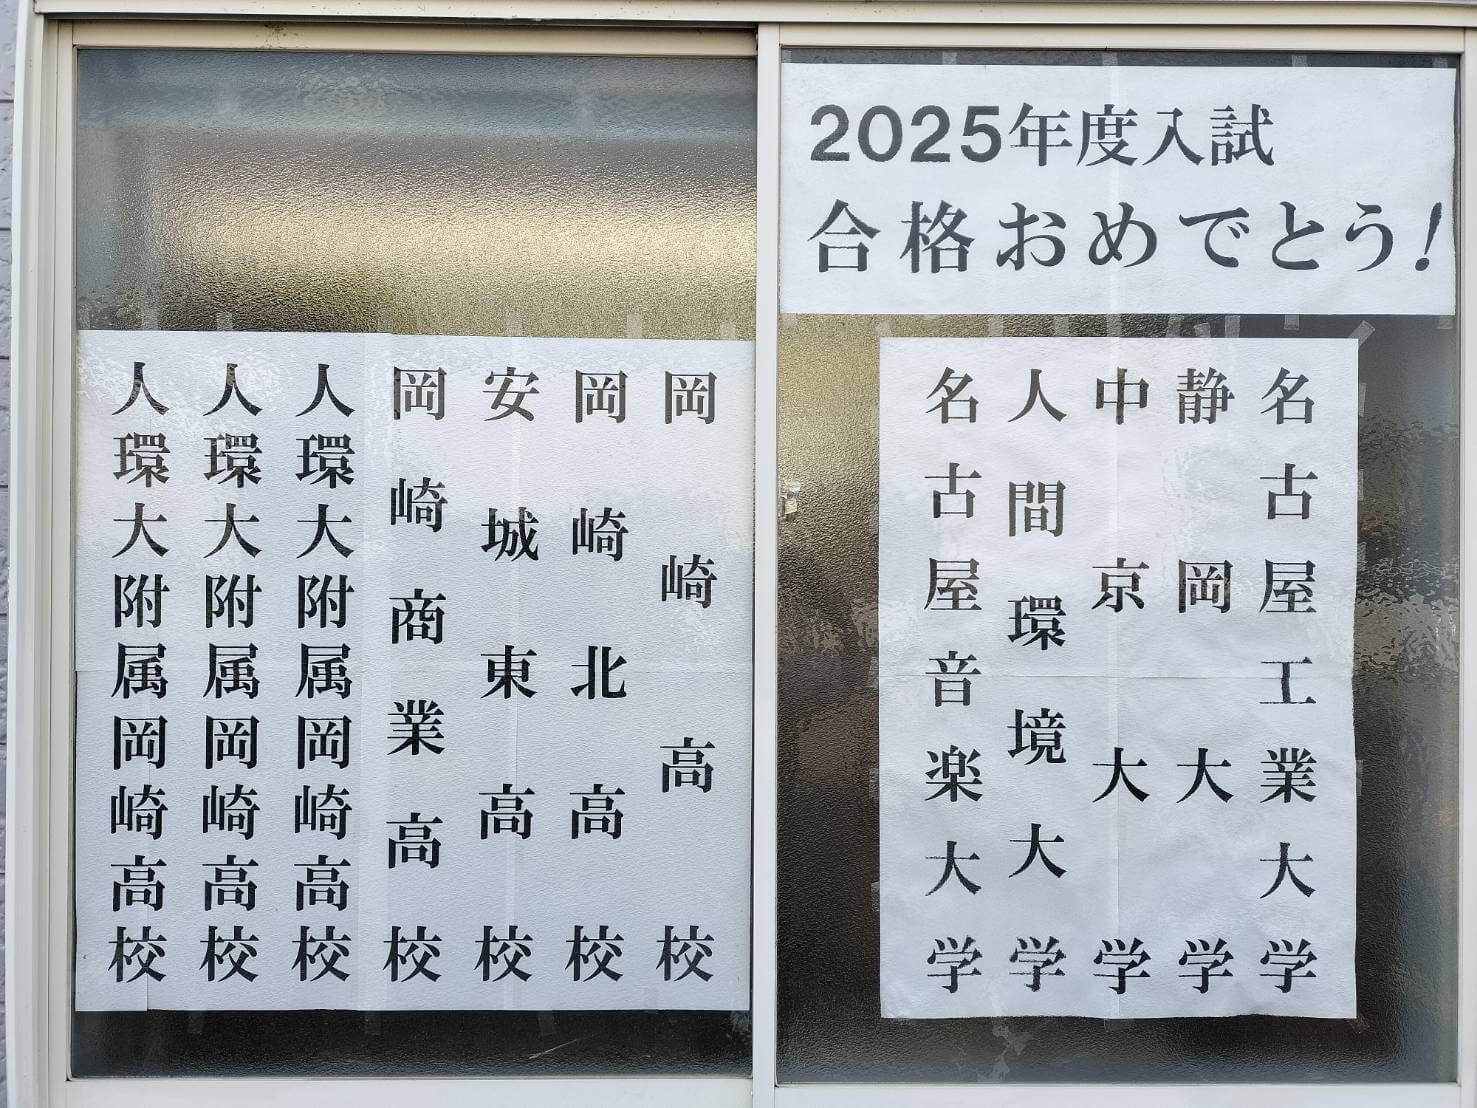 2025年度入試
合格おめでとう!
名古屋工業大学
静岡大学
中京大学
人間環境大学
名古屋音楽大学
岡崎高校
岡崎北高校
安城東高校
岡崎商業高校
人環大附属岡崎高校
人環大附属岡崎高校
人環大附属岡崎高校